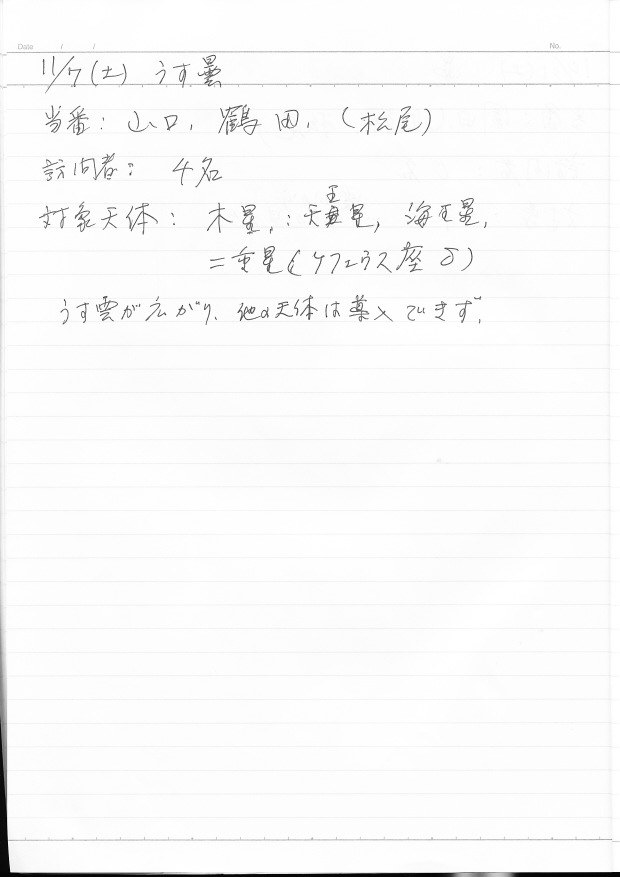 Date / /
No.
11/7(土) うす曇
当番: 山口, 鶴田, (松尾)
訪問者: 4名
対象天体: 木星, : 天王星, 海王星,
二重星(ケフェウス座 δ)
うす雲が広がり、他の天体は導入できず。